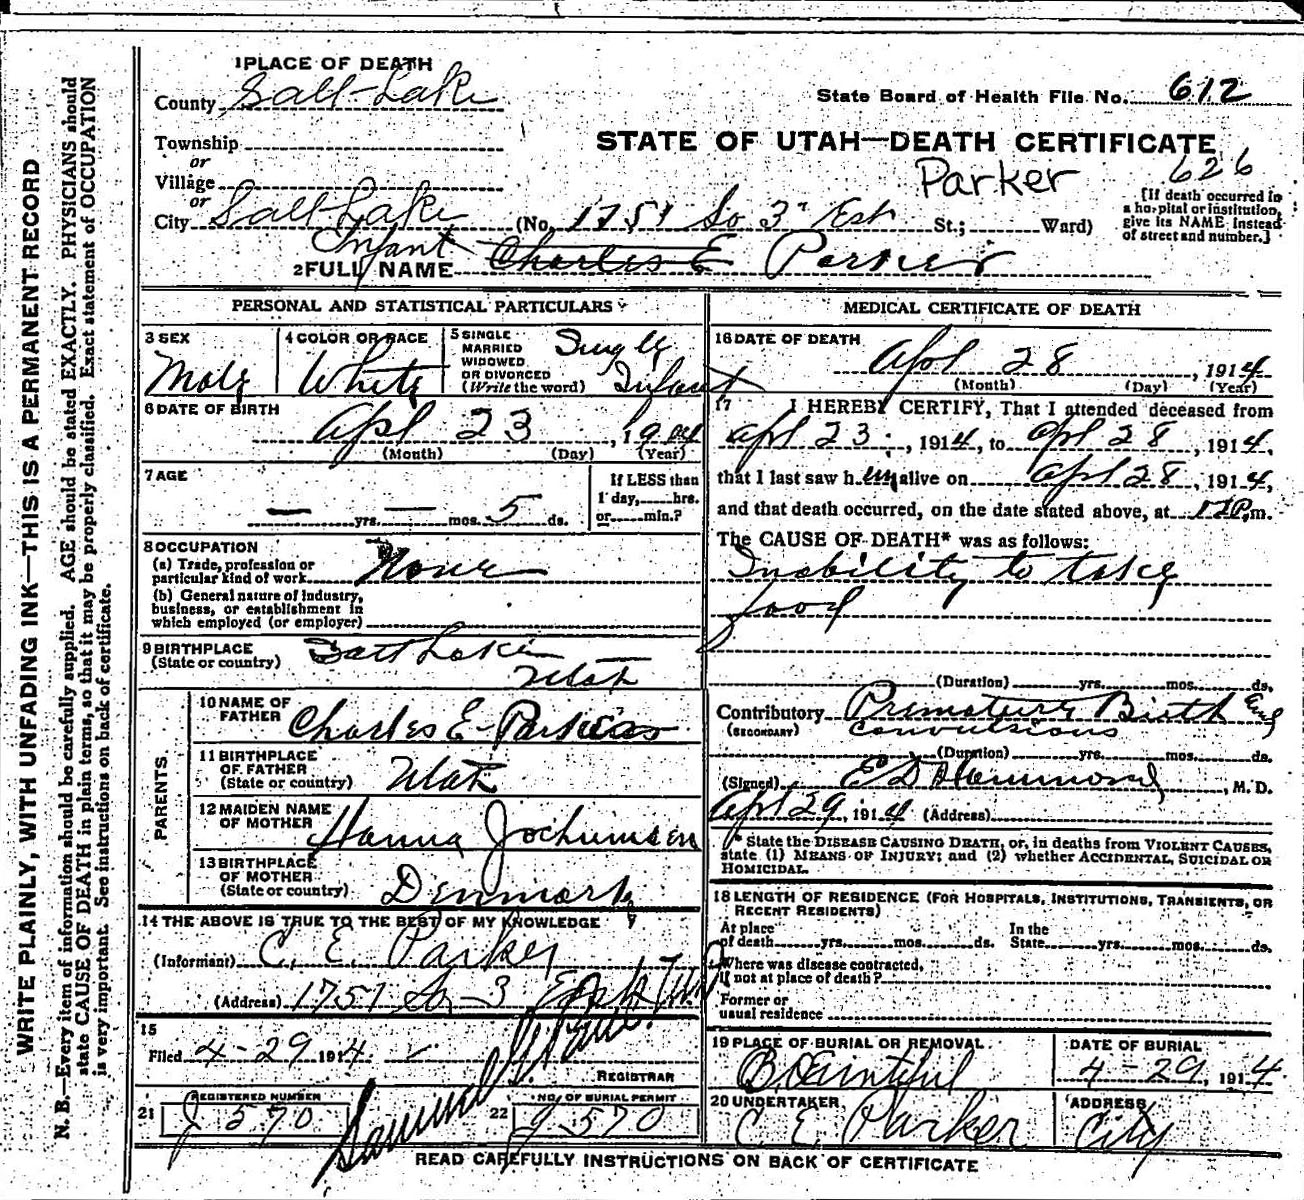 WRITE PLAINLY, WITH UNFADING INK—THIS IS A PERMANENT RECORD
N. B.—Every item of information should be carefully supplied. AGE should be stated EXACTLY. PHYSICIANS should
state CAUSE OF DEATH in plain terms, so that it may be properly classified. Exact statement of OCCUPATION
is very important. See instructions on back of certificate.
1 PLACE OF DEATH
County Salt Lake
Township
or
Village
or
City Salt Lake
State Board of Health File No. 612
STATE OF UTAH—DEATH CERTIFICATE
Parker 626
(No. 1751 So 3" East St.; Ward)
[If death occurred in
a hospital or institution,
give its NAME instead
of street and number.]
Infant
2 FULL NAME Charles E Parker
PERSONAL AND STATISTICAL PARTICULARS
3 SEX
Male
4 COLOR OR RACE
White
5 SINGLE
MARRIED
WIDOWED
OR DIVORCED
(Write the word)
Single
Infant
6 DATE OF BIRTH
Apl 23, 1914
(Month) (Day) (Year)
7 AGE
— yrs. — mos. 5 ds.
If LESS than
1 day, hrs.
or min.?
8 OCCUPATION
(a) Trade, profession or
particular kind of work None
(b) General nature of industry,
business, or establishment in
which employed (or employer)
9 BIRTHPLACE
(State or country)
Salt Lake
Utah
PARENTS
10 NAME OF
FATHER Charles E Parker
11 BIRTHPLACE
OF FATHER
(State or country) Utah
12 MAIDEN NAME
OF MOTHER Hanna Jochumsen
13 BIRTHPLACE
OF MOTHER
(State or country) Denmark
14 THE ABOVE IS TRUE TO THE BEST OF MY KNOWLEDGE
(Informant) C. E. Parker
(Address) 1751 So 3 East
15
Filed 4-29 1914
Samuel G. Paul
REGISTRAR
21 REGISTERED NUMBER
J 570
22 NO. OF BURIAL PERMIT
J 570
MEDICAL CERTIFICATE OF DEATH
16 DATE OF DEATH
Apl 28, 1914
(Month) (Day) (Year)
17 I HEREBY CERTIFY, That I attended deceased from
Apl 23, 1914, to Apl 28, 1914,
that I last saw him alive on Apl 28, 1914,
and that death occurred, on the date stated above, at 12 P.m.
The CAUSE OF DEATH* was as follows:
Inability to take
food
(Duration) yrs. mos. ds.
Contributory Premature Birth and
(SECONDARY) Convulsions
(Duration) yrs. mos. ds.
(Signed) E D Hammond, M.D.
Apl 29, 1914 (Address)
* State the DISEASE CAUSING DEATH, or, in deaths from VIOLENT CAUSES,
state (1) MEANS OF INJURY; and (2) whether ACCIDENTAL, SUICIDAL OR
HOMICIDAL.
18 LENGTH OF RESIDENCE (FOR HOSPITALS, INSTITUTIONS, TRANSIENTS, OR
RECENT RESIDENTS)
At place
of death yrs. mos. ds.
In the
State yrs. mos. ds.
Where was disease contracted,
if not at place of death?
Former or
usual residence
19 PLACE OF BURIAL OR REMOVAL
Bountiful
DATE OF BURIAL
4-29, 1914
20 UNDERTAKER
C E Parker
ADDRESS
City
READ CAREFULLY INSTRUCTIONS ON BACK OF CERTIFICATE